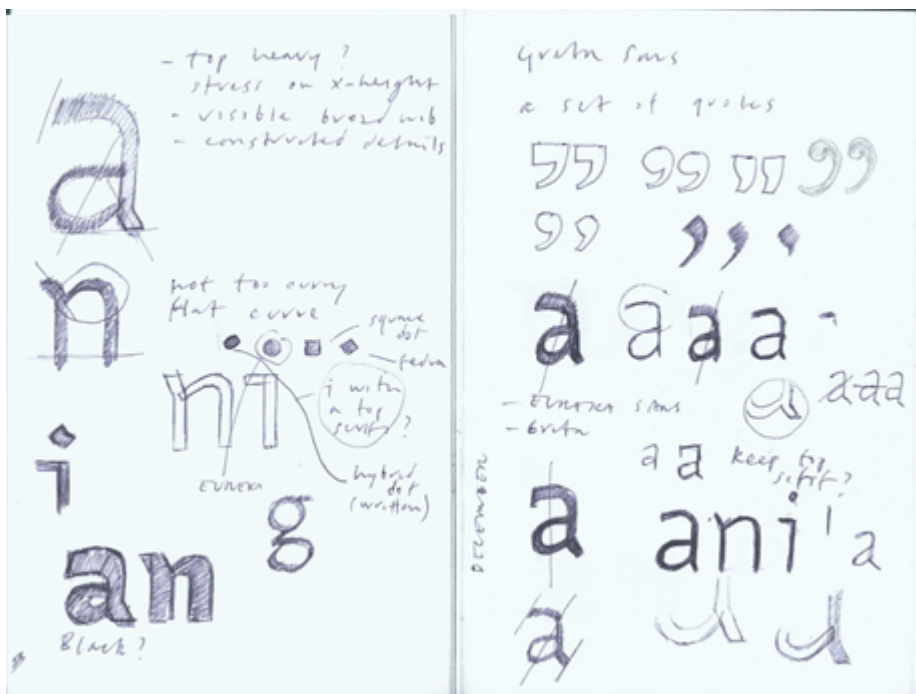 - top heavy?
stress on x-height
- visible broad nib
- constructed details
a
n
not too curvy
flat curve
square
dot
fedra
n i
i with
a top
serif?
EUREKA
hybrid
dot
(written)
i
g
an
Black?
Greta Sans
a set of quotes
” “ " ”
“ ,
a a a a
- EUREKA SANS
- Greta
a a a a
a a keep top
serif?
DECEMBER
a ani i a
a